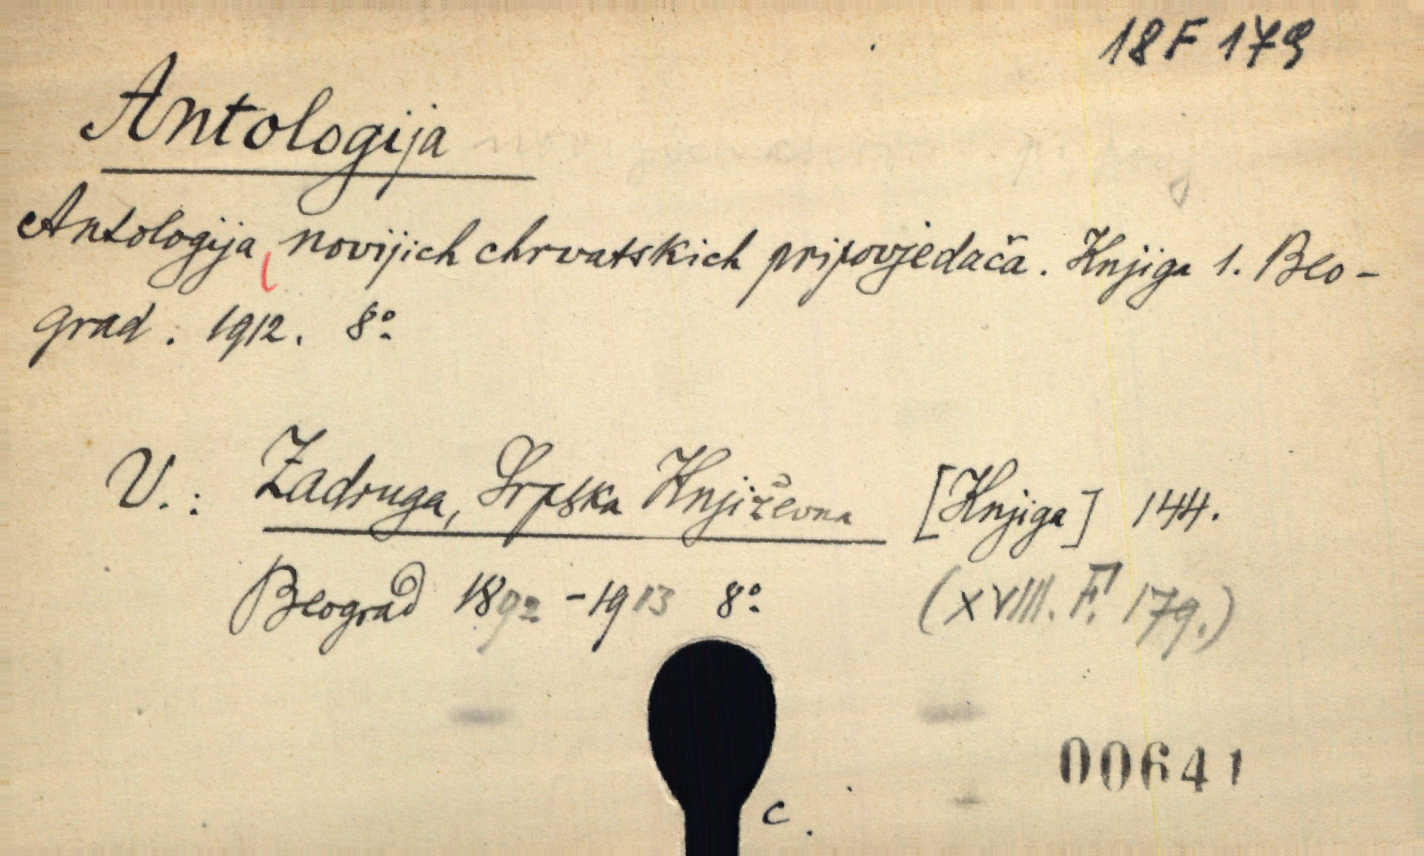 18 F 179
Antologija
Antologija novijich chrvatskich pripovjedača. Knjiga 1. Beo-
grad. 1912. 8°
V.: Zadruga, Srpska Književna [Knjiga] 144.
Beograd 1892-1913 8° (XVIII. F. 179.)
00641
c.